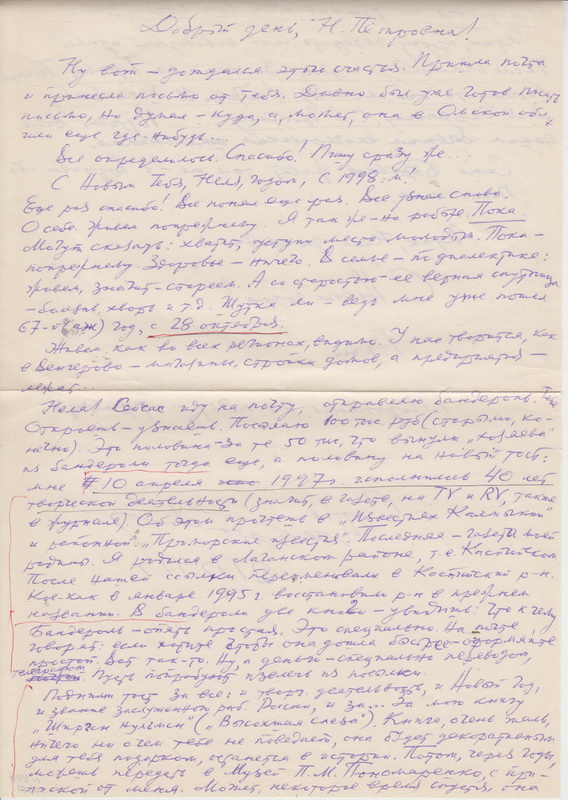 Добрый день, Н. Петровна!
Ну вот – дождался этого счастья. Пришла почта
и принесла письмо от тебя. Давно был уже готов писать
письмо, но думал – куда, а, может, она в Омской обл.,
или еще где-нибудь.
Все определилось. Спасибо! Пишу сразу же...
С Новым Тебя, Неля, годом, с 1998-м!
Еще раз спасибо! Все понял еще раз. Все узнал снова.
О себе. Живем по-прежнему. Я так же – на работе. Пока
могут сказать: хватит, уступи место молодым. Пока –
по-прежнему. Здоровье – ничего. В семье – по диалектике:
живем, значит – стареем. А со старостью – ее верная спутница
– болезнь, хворь и т.д. Шутка ли – ведь мне уже пошел
67-й (аж) год, с 28 октября.
Живем как во всех регионах, видимо. У нас творится, как
в Венгерово – магазины, стройки домов, а предприятия –
лежат...
Неля! Сейчас иду на почту, отправляю бандероль. Тебе
Откроешь – узнаешь. Посылаю 100 тыс. руб (старыми, ко-
нечно). Это половина – за те 50 тыс, что вынули „хозяева"
из бандероли тогда еще, а половину на новый тост:
мне 10 апреля 1997 г. исполнилось 40 лет
творческой деятельности (значит, в газете, на TV и RV, также
в журнале). Об этом прочтешь в „Известиях Калмыкии"
и районной „Приморские известия". Последняя – газета моей
родины. Я родился в Лаганском районе, т.е. Каспийском
После нашей ссылки переименовали в Каспийский р-н.
Кое-как в январе 1995 г. восстановили р-н в прежнем
названии. В бандероли две книги – увидишь: что к чему
Бандероль – опять простая. Это специально. На почте
говорят: если хотите чтобы она дошла быстрее – оформляйте
простой. Вот так-то. Ну, а деньги – специально переводом,
телеграфом. Пусть попробуют извлечь из посылки.
Подними тост за все: и творч. деятельность, и Новый Год,
и звание заслуженный раб. России, и за... За мою книгу
„Ширгсн нульмсн" („Высохшая слеза"). Книга, очень жаль,
ничего ни о чем тебе не поведает, она будет декоративным
для тебя подарком, останется в истории. Потом, через годы,
можешь передать в Музей П.М. Пономаренко, с при-
пиской от меня. Может, некоторое время спустя, она